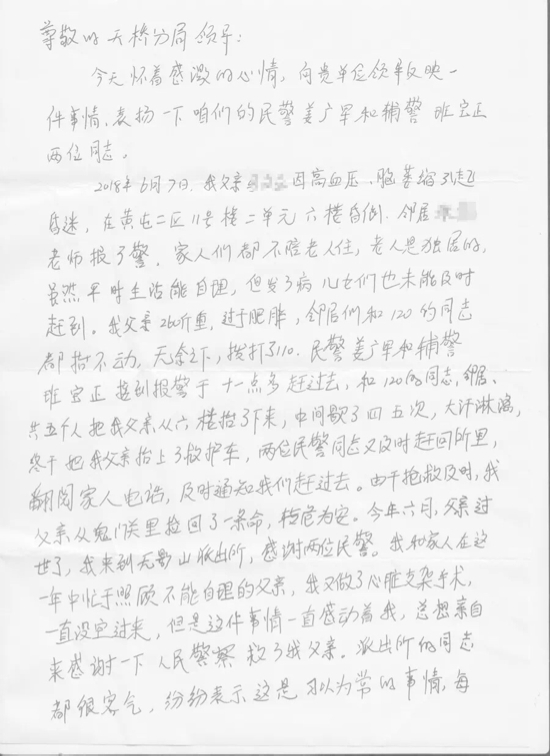 尊敬的天桥分局领导:
今天怀着感激的心情,向贵单位领导反映一
件事情,表扬一下咱们的民警姜广军和辅警班宝正
两位同志。
2018年6月7日,我父亲因高血压、脑萎缩引起
昏迷,在黄屯二区11号楼二单元六楼昏倒.邻居
老师报了警.家人们都不陪老人住,老人是独居的,
虽然平时生活能自理,但发了病儿女们也未能及时
赶到。我父亲260斤重,过于肥胖,邻居们和120的同志
都抬不动,无奈之下,拨打了110.民警姜广军和辅警
班宝正接到报警于十一点多赶过去,和120的同志,邻居、
共五个人把我父亲从六楼抬了下来,中间歇了四五次,大汗淋漓,
终于把我父亲抬上了救护车,两位民警同志又及时赶回所里,
翻阅家人电话,及时通知我们赶过去。由于抢救及时,我
父亲从鬼门关里捡回了一条命,转危为安。今年六月,父亲过
世了,我来到无影山派出所,感谢两位民警。我和家人在这
一年中忙于照顾不能自理的父亲,我又做了心脏支架手术,
一直没空过来,但是这件事情一直感动着我,总想亲自
来感谢一下人民警察救了我父亲。派出所的同志
都很客气,纷纷表示这是习以为常的事情,每